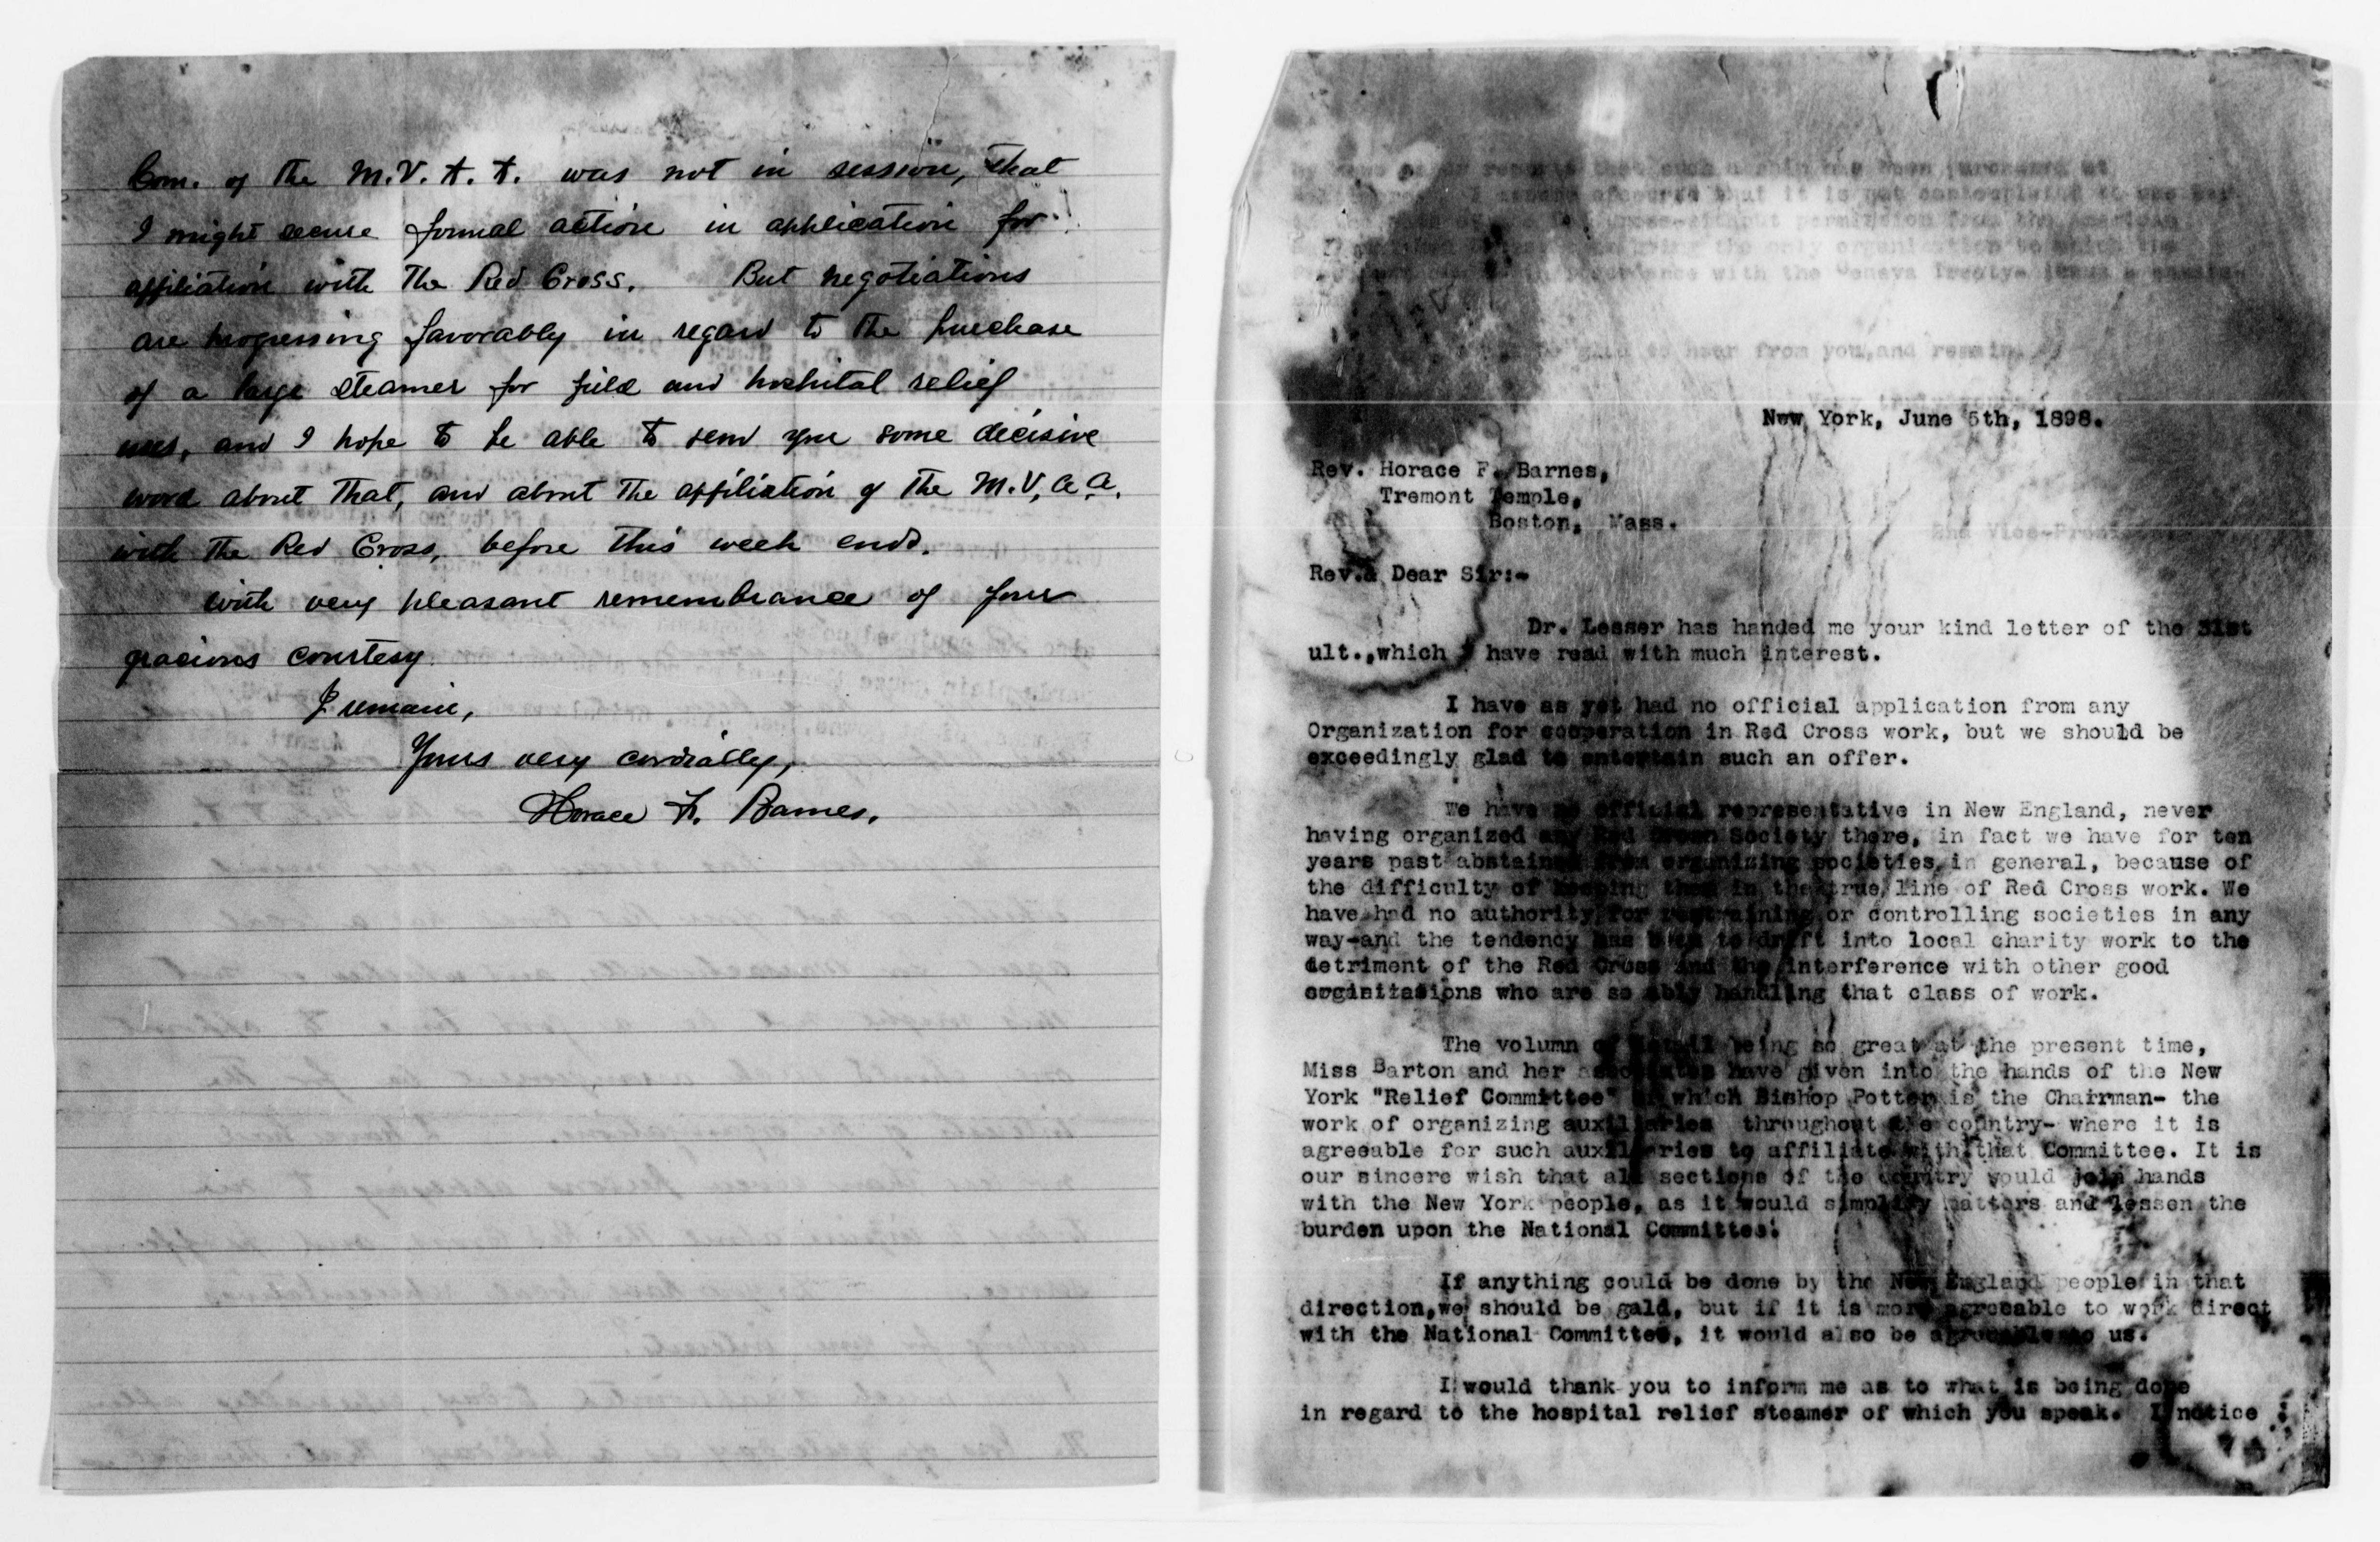 Com. of the M.V.A.A. was not in session, that
I might secure formal action in application for
affiliation with the Red Cross. But negotiations
are progressing favorably in regard to the purchase
of a large steamer for field and hospital relief
uses, and I hope to be able to send you some decisive
word about that, and about the affiliation of the M.V.A.A.
with the Red Cross, before this week ends.
With very pleasant remembrance of your
gracious courtesy.
I remain,
Yours very cordially,
Horace F. Barnes.
glad to hear from you, and remain,
New York, June 5th, 1898.
Rev. Horace F. Barnes,
Tremont Temple,
Boston, Mass.
2nd Vice-President
Rev.& Dear Sir:-
Dr. Lesser has handed me your kind letter of the 31st
ult.,which I have read with much interest.
I have as yet had no official application from any
Organization for cooperation in Red Cross work, but we should be
exceedingly glad to entertain such an offer.
We have no official representative in New England, never
having organized any Red Cross Society there, in fact we have for ten
years past abstained from organizing societies, in general, because of
the difficulty of keeping them in the true line of Red Cross work. We
have had no authority for restraining or controlling societies in any
way-and the tendency has been to drift into local charity work to the
detriment of the Red Cross and the interference with other good
who are so ably handling that class of work.
The volumn of detail being so great at the present time,
Miss Barton and her associates have given into the hands of the New
York "Relief Committee" of which Bishop Potter is the Chairman- the
work of organizing auxiliaries throughout the country- where it is
agreeable for such auxiliaries to affiliate with that Committee. It is
our sincere wish that all sections of the country would join hands
with the New York people, as it would simplify matters and lessen the
burden upon the National Committee.
If anything could be done by the New England people in that
direction,we should be gald, but if it is more agreeable to work direct
with the National Committee, it would also be agreeable to us.
I would thank you to inform me as to what is being done
in regard to the hospital relief steamer of which you speak. I notice